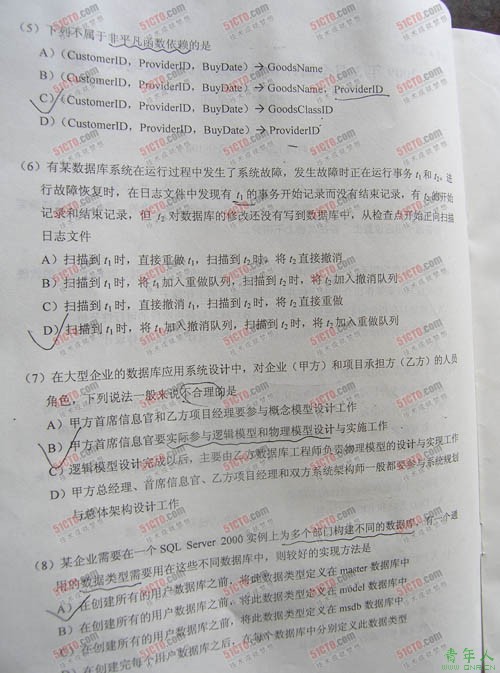 (5) 下列不属于非平凡函数依赖的是
A)(CustomerID，ProviderID，BuyDate)→GoodsName
B)(CustomerID，ProviderID，BuyDate)→GoodsName，ProviderID
C)(CustomerID，ProviderID，BuyDate)→GoodsClassID
D)(CustomerID，ProviderID，BuyDate)→ProviderID
(6) 有某数据库系统在运行过程中发生了系统故障，发生故障时正在运行事务t1和t2。进
行故障恢复时，在日志文件中发现有t1的事务开始记录而没有结束记录，有t2的开始
记录和结束记录，但t2对数据库的修改还没有写到数据库中，从检查点开始正向扫描
日志文件
A) 扫描到t1时，直接重做t1，扫描到t2时，将t2直接撤消
B) 扫描到t1时，将t1加入重做队列，扫描到t2时，将t2加入撤消队列
C) 扫描到t1时，直接撤消t1，扫描到t2时，将t2直接重做
D) 扫描到t1时，将t1加入撤消队列，扫描到t2时，将t2加入重做队列
(7) 在大型企业的数据库应用系统设计中，对企业（甲方）和项目承担方（乙方）的人员
角色，下列说法一般来说不合理的是
A) 甲方首席信息官和乙方项目经理要参与概念模型设计工作
B) 甲方首席信息官要实际参与逻辑模型和物理模型设计与实施工作
C) 逻辑模型设计完成以后，主要由乙方数据库工程师负责物理模型的设计与实现工作
D) 甲方总经理、首席信息官、乙方项目经理和双方系统架构师一般都要参与系统规划
与总体架构设计工作
(8) 某企业需要在一个SQL Server 2000实例上为多个部门构建不同的数据库，有一个通
用的数据类型需要用在这些不同数据库中，则较好的实现方法是
A) 在创建所有的用户数据库之前，将此数据类型定义在master数据库中
B) 在创建所有的用户数据库之前，将此数据类型定义在model数据库中
C) 在创建所有的用户数据库之前，将此数据类型定义在msdb数据库中
D) 在创建完每个用户数据库之后，在每个数据库中分别定义此数据类型
51CTO.com
技术成就梦想
青年人